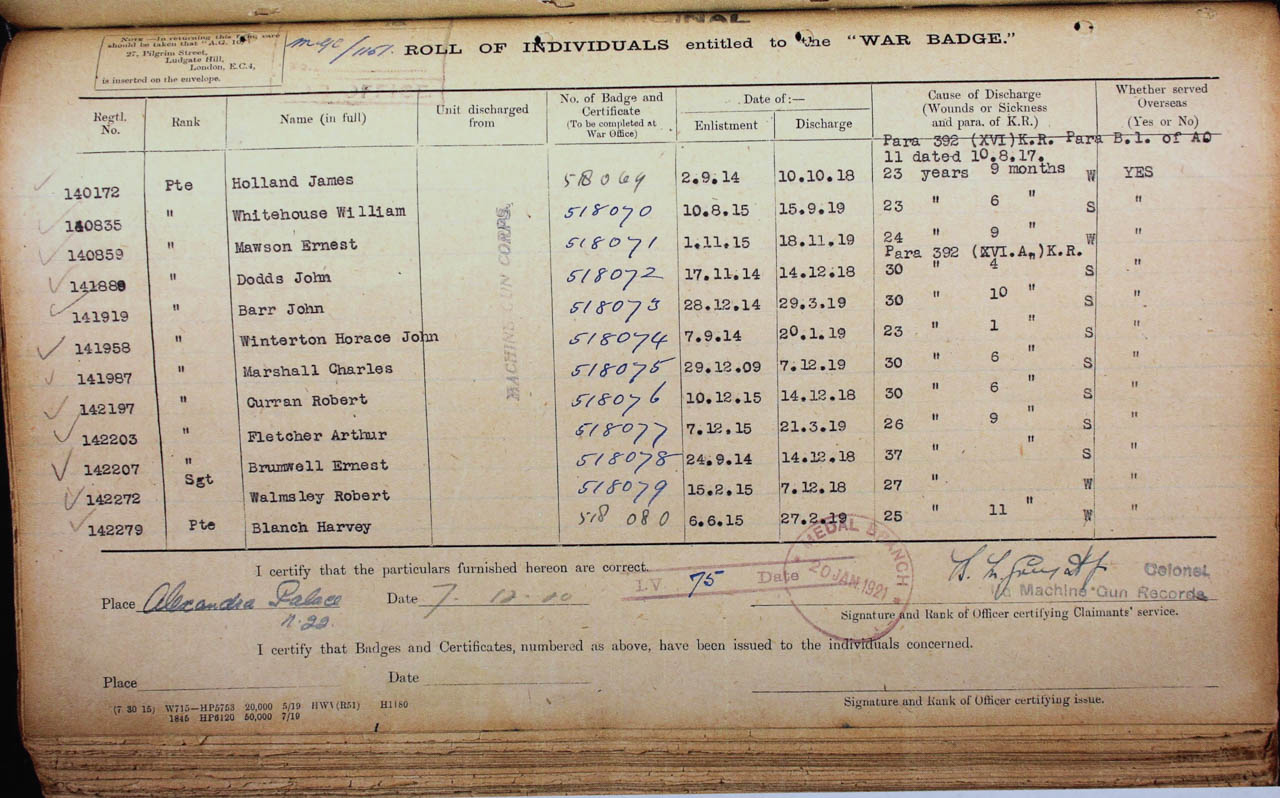 ORIGINAL
NOTE.—In returning this form care
should be taken that "A.G. 10"
27, Pilgrim Street,
Ludgate Hill,
London, E.C.4,
is inserted on the envelope.
ROLL OF INDIVIDUALS entitled to the "WAR BADGE."
Regtl. No. Rank Name (in full) Unit discharged from No. of Badge and Certificate (To be completed at War Office) Date of:— Enlistment Discharge Cause of Discharge (Wounds or Sickness and para. of K.R.) Whether served Overseas (Yes or No)
Para 392 (XVI)K.R. Para B.1. of AO
11 dated 10.8.17.
140172 Pte Holland James 518069 2.9.14 10.10.18 23 years 9 months W YES
140835 " Whitehouse William 518070 10.8.15 15.9.19 23 " 6 " S "
140859 " Mawson Ernest 518071 1.11.15 18.11.19 24 " 9 " W "
Para 392 (XVI.A.)K.R.
141889 " Dodds John 518072 17.11.14 14.12.18 30 " 4 S "
141919 " Barr John 518073 28.12.14 29.3.19 30 " 10 " S "
141958 " Winterton Horace John 518074 7.9.14 20.1.19 23 " 1 " S "
141987 " Marshall Charles 518075 29.12.09 7.12.19 30 " 6 " S "
142197 " Curran Robert 518076 10.12.15 14.12.18 30 " 6 " S "
142203 " Fletcher Arthur 518077 7.12.15 21.3.19 26 " 9 " S "
142207 " Brumwell Ernest 518078 24.9.14 14.12.18 37 " " S "
142272 Sgt Walmsley Robert 518079 15.2.15 7.12.18 27 " W "
142279 Pte Blanch Harvey 518 080 6.6.15 27.2.19 25 " 11 " W "
MACHINE GUN CORPS.
I certify that the particulars furnished hereon are correct.
I.V. 75 Date
MEDAL BRANCH
20 JAN 1921
Colonel
Machine Gun Records
Place Alexandra Palace Date 7.12.20
N.22.
Signature and Rank of Officer certifying Claimants' service.
I certify that Badges and Certificates, numbered as above, have been issued to the individuals concerned.
Place Date
Signature and Rank of Officer certifying issue.
(7 30 15) W715—HP5753 20,000 5/19 HWV(R51) H1180
1845 HP6120 50,000 7/19